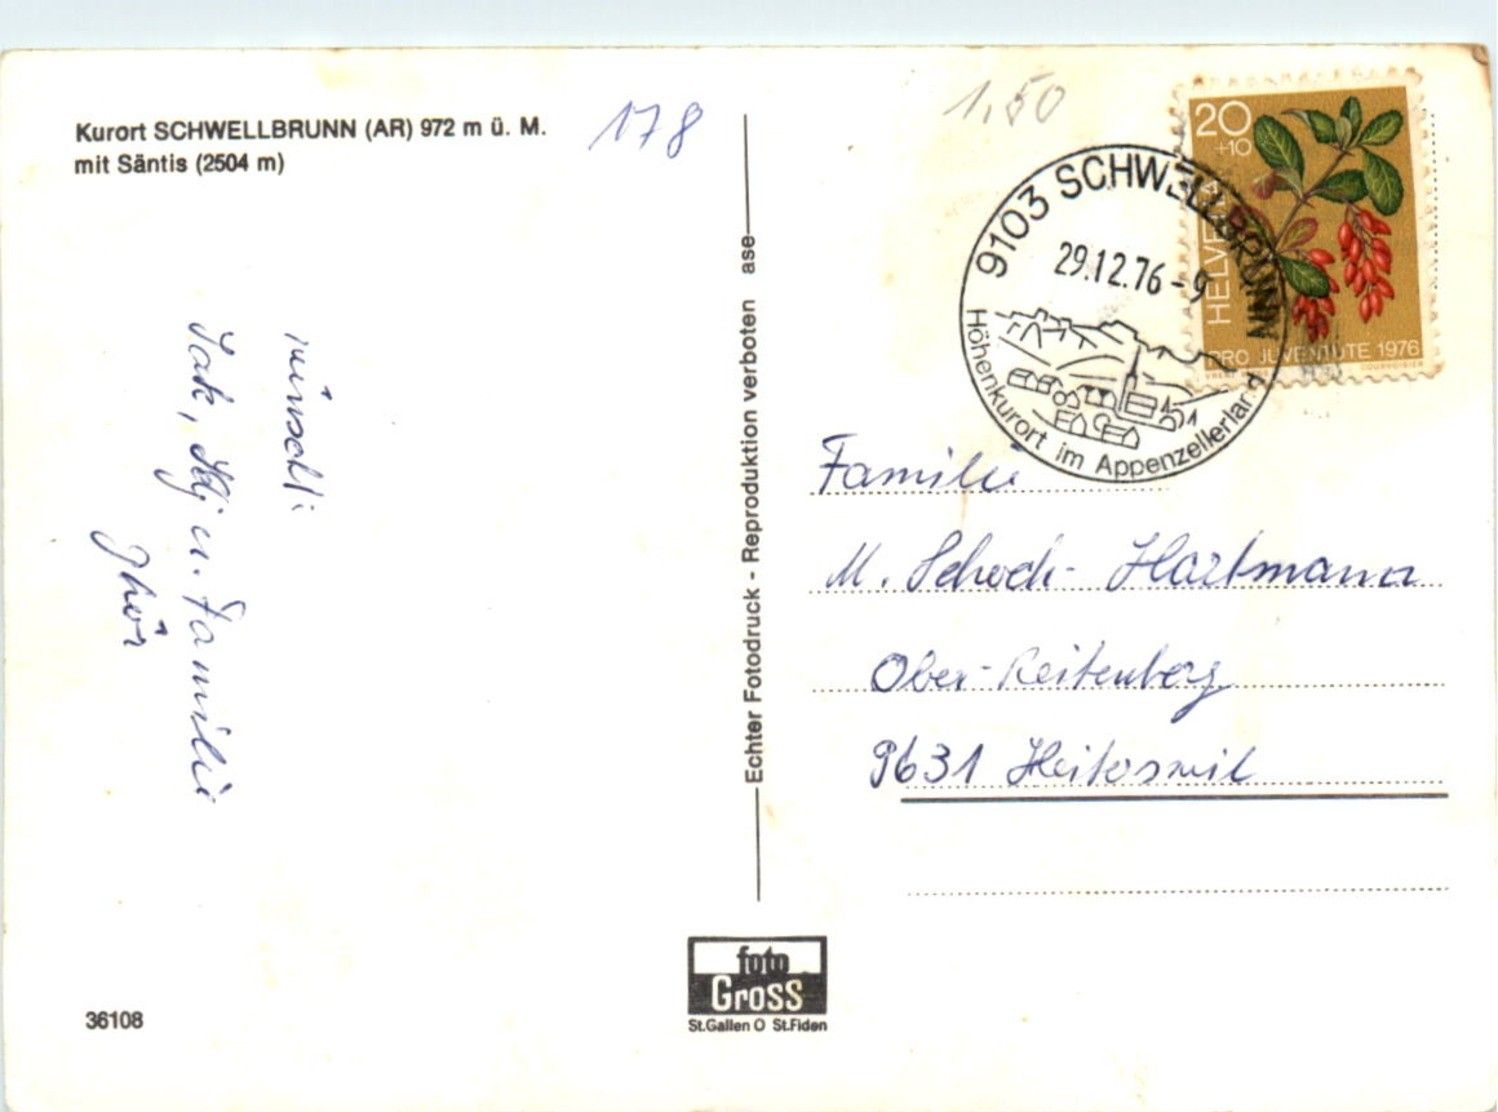 Kurort SCHWELLBRUNN (AR) 972 m ü. M.
mit Säntis (2504 m)
178
1.50
20
+10
HELVETIA
PRO JUVENTUTE 1976
COURVOISIER
9103 SCHWELLBRUNN
29.12.76-9
Höhenkurort im Appenzellerland
wünscht
Jak, u. Familie
Echter Fotodruck - Reproduktion verboten ase
Familie
M. Schoch-Hartmann
Ober-Reitenberg
9631 Heiterswil
foto
Gross
St.Gallen O St.Fiden
36108